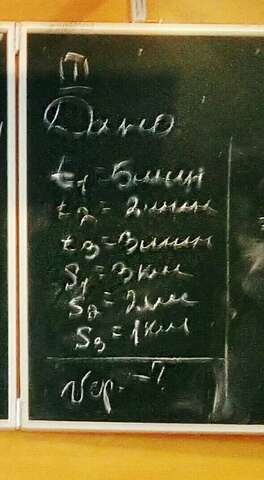 Ⅲ
Дано
t₁ = 5 мин
t₂ = 2 мин
t₃ = 3 мин
S₁ = 3 км
S₂ = 2 км
S₃ = 1 км
Vср. - ?